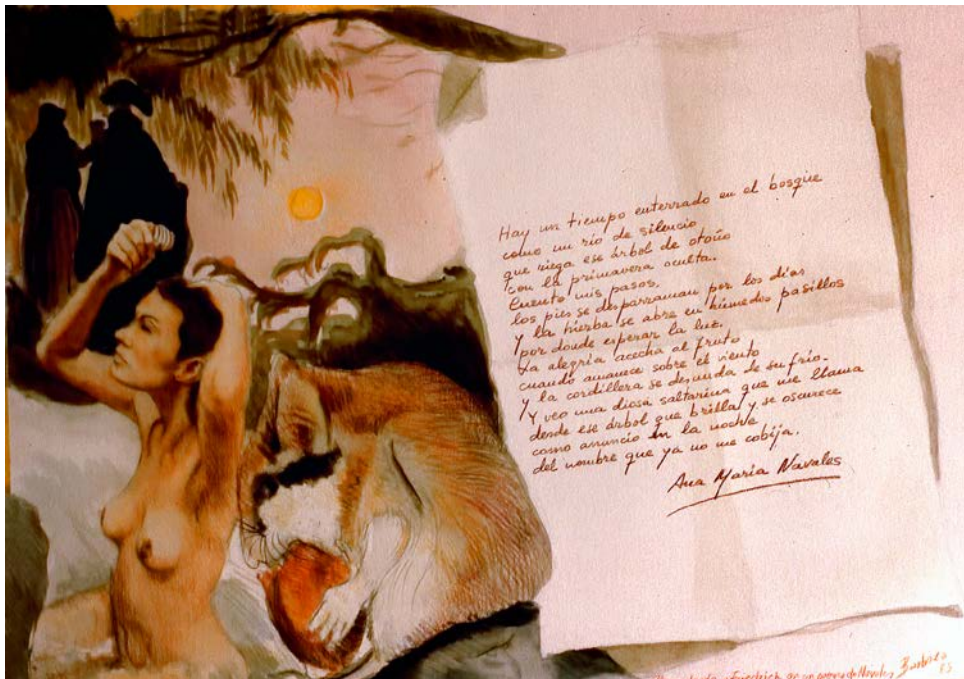 Hay un tiempo enterrado en el bosque
como un río de silencio
que riega ese árbol de otoño
con la primavera oculta.
Cuento mis pasos,
los pies se desparraman por los días
y la hierba se abre en húmedos pasillos
por donde esperar la luz.
La alegría acecha al fruto
cuando amanece sobre el viento
y la cordillera se desnuda de su frío.
Y veo una diosa saltarina que me llama
desde ese árbol que brilla y se oscurece
como anuncio en la noche
del nombre que ya no me cobija.
Ana María Navales
Friedrich en un poema de Navales